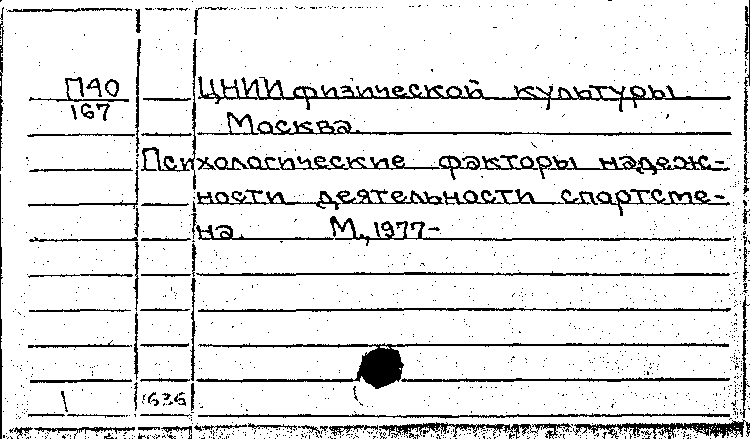 П40 ЦНИИ физической культуры
167 Москва.
Психологические факторы надеж-
ности деятельности спортсме-
на. М., 1977-
1636